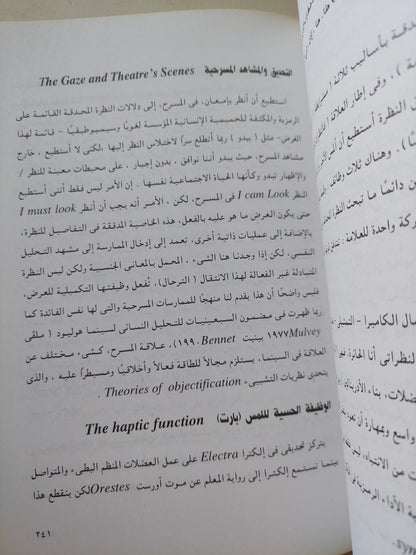 التحديق والمشاهد المسرحية The Gaze and Theatre's Scenes
أستطيع أن أنظر بإمعان، في المسرح، إلى دلالات النظرة المحدقة القائمة على
الرمزية والمكثفة للحميمية الإنسانية المؤسسة لغويا وسيميوطيقيا - قائمة لهذا
الغرض- مثل (يبدو) ربما أتطلع سراً لاختلاس النظر إليها. لكنى لا أستطيع . خارج
مشاهد المسرح، حيث يبدو أننا نوافق ، بدون إجبار ، على محطات معينة للنظر /
والإظهار تبدو وكأنها الحياة الاجتماعية نفسها . إن الأمر ليس فقط أنني أستطيع
النظر I cam Look فى المسرح، لكن ، الأمر أنه يجب أن أنظر I must look
حتى يكون العرض ما هو عليه بالفعل، هذه الخاصية المدققة في التفاصيل للنظرة،
بالإضافة إلى عمليات ذاتية أخرى، تعمد إلى إدخال الممارسة إلى مشهد التحليل
النفسي. لكن إذا وجدنا هنا الشيء . المحمل بالمعانى الجنسية ولكن ليس النظرة
المتبادلة غير الفعالة لهذا الانتقال ( الترحال)، تُفعل وظيفتها التكميلية للعرض،
فليس واضحاً أن هذا يقدم لنا منهجًا للممارسات المسرحية والتى لها نفس الفائدة كما
ربما ظهرت فى مضمون السبعينيات للتحليل النسائى لسينما هوليود ( ملفى
Mulvey ١٩٧٧ بينيت Bennet ١٩٩٠)، علاقة المسرح، كشىء مختلف عن
العلاقة فى السينما، يستلزم مجالاً للطاقة فعالاً وأخلاقيًا ومسيطراً عليه ، والذى
يتحدى نظريات التشيىء Theories of objectification .
الوظيفة الحسية للمس (بارت) The haptic function
يتركز تحديقى فى إلكترا Electra على عمل العضلات المنظم البطىء والمتواصل
بينما تستمع إلكترا إلى رواية المعلم عن موت أورست Orestes لكن ينقطع هذا
٢٤١